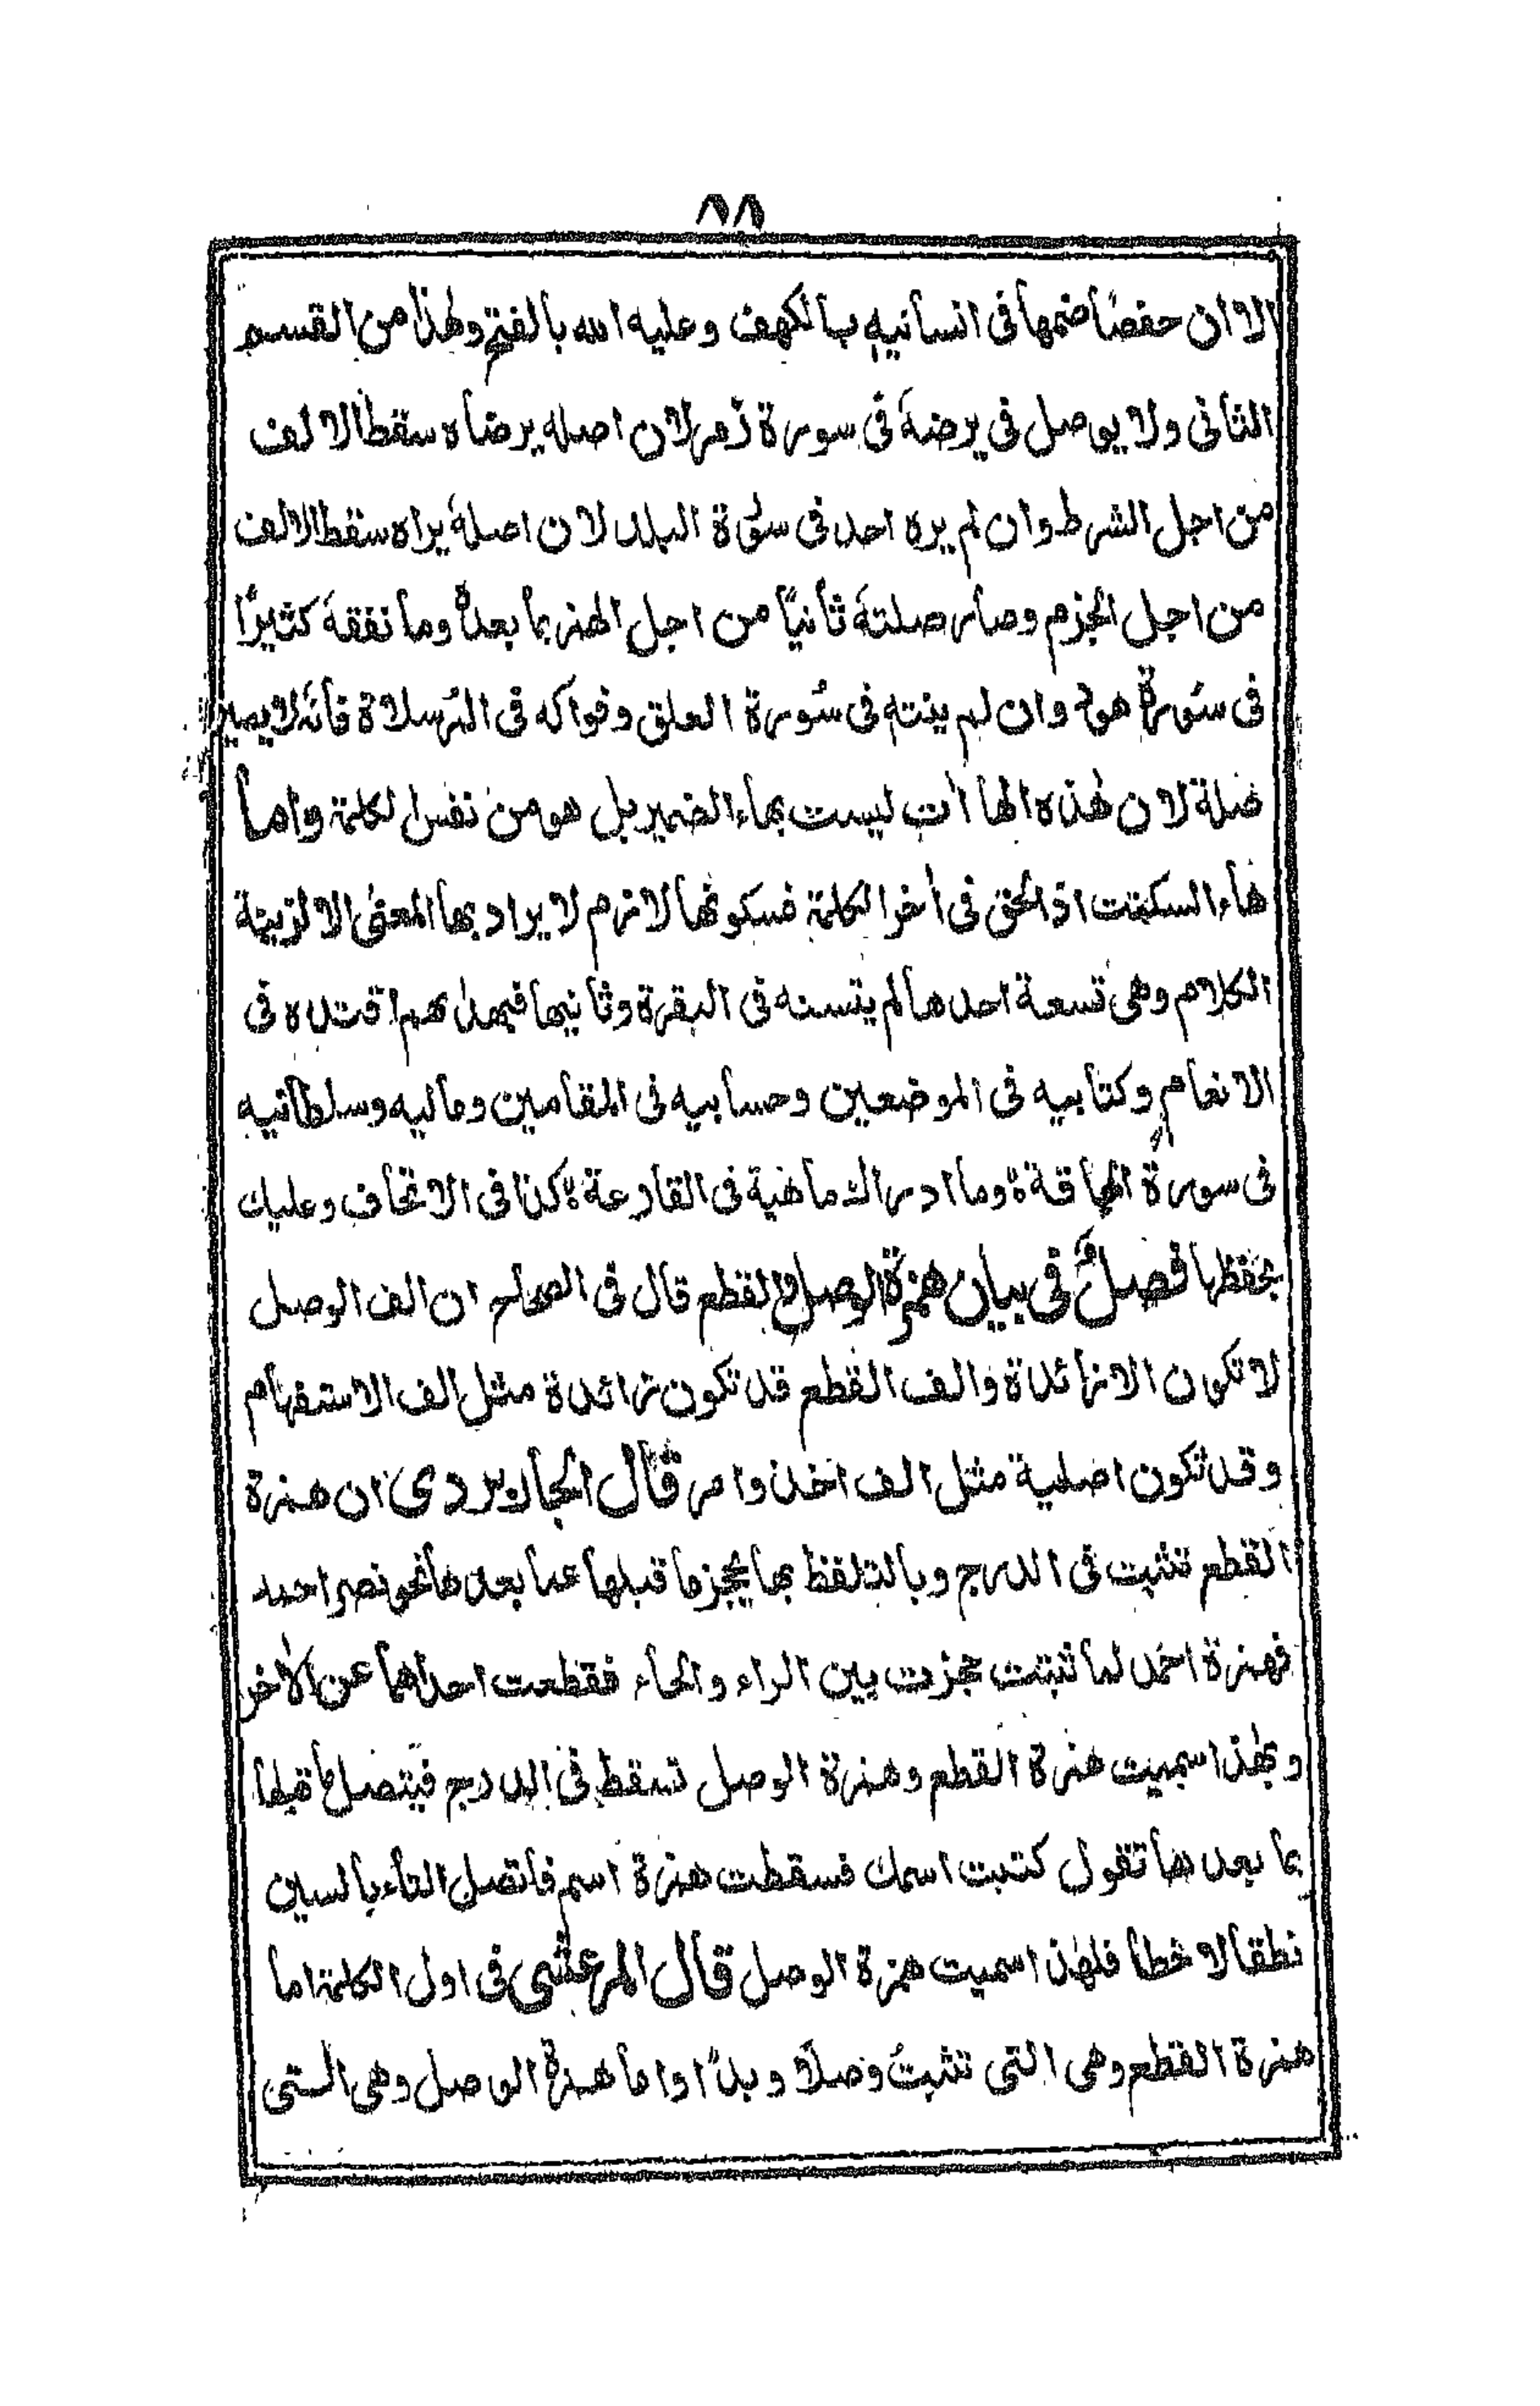 ٨٨
الا ان حفصًا ضمها فى انسانيه بالكهف وعليه الله بالفتح وهٰذا من القسم
الثانى ولا يوصل فى يرضهٗ فى سورة زمر لان اصله يرضاه سقط الالف
من اجل الشرط وان لم يره احد فى سورة البلد لان اصلهٗ يراه سقط الالف
من اجل الجزم وصار صلتهٗ ثانيًا من اجل الهمز بما بعدهٗ وما نفقهٗ كثيرًا
فى سُورة هود وان لم ينته فى سُورة العلق وفواكه فى المُرسلاة فانهٗ لا يصير
ضلة لان هٰذه الهاأت ليست بهاء الضمير بل هو من نفس لكلمة واما
هاء السكتت اذ الحق فى أخر الكلمة فسكونها لازم لا يراد بها المعنى الا لتزيينة
الكلام وهى تسعة احدها لم يتسنه فى البقرة وثانيها فبهدٰىهم اقتده فى
الانعام وكتابيه فى الموضعين وحسابيه فى المقامين وماليه وسلطانيه
فى سورة الحاقة وما ادراك ماهية فى القارعة كذا فى الاتحاف وعليك
بحفظها فصلٌ فى بيان همزة الوصل والقطع قال فى الصحاح ان الف الوصل
لا تكون الا زائدة والف القطع قد تكون زائدة مثل الف الاستفهام
وقد تكون اصلية مثل الف اخذ وامر قال الجاربردى ان همزة
القطع تثبت فى الدرج وبالتلفظ بها يحجز ما قبلها عما بعدها نحو نصر احمد
فهمزة احمد لما ثبتت حجزت بين الراء والحاء فقطعت احداهما عن الأخر
وبهٰذا سميت همزة القطع وهمزة الوصل تسقط فى الدرج فيتصل ما قبلها
بما بعدها تقول كتبت اسمك فسقطت همزة اسم فاتصل التاء بالسين
نطقا لا خطا فلهٰذا سميت همزة الوصل قال المرعشى فى اول الكلمة اما
همزة القطع وهى التى تثبتُ وصلًا وبدًا واما همزة الوصل وهى التى